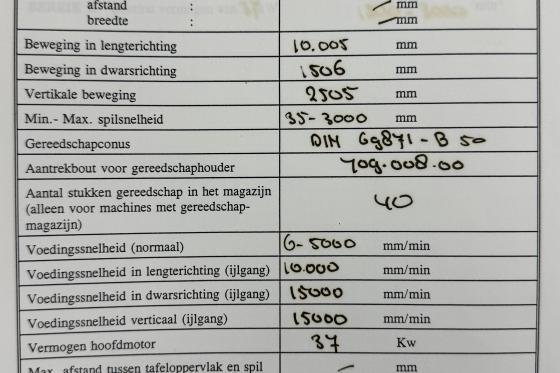 afstand : — mm
breedte : — mm
Beweging in lengterichting 10.005 mm
Beweging in dwarsrichting 1506 mm
Vertikale beweging 2505 mm
Min.- Max. spilsnelheid 35-3000 mm
Gereedschapconus DIN 69871-B 50
Aantrekbout voor gereedschaphouder 709.008.00
Aantal stukken gereedschap in het magazijn
(alleen voor machines met gereedschap- 40
magazijn)
Voedingssnelheid (normaal) 6-5000 mm/min
Voedingssnelheid in lengterichting (ijlgang) 10.000 mm/min
Voedingssnelheid in dwarsrichting (ijlgang) 15000 mm/min
Voedingssnelheid verticaal (ijlgang) 15000 mm/min
Vermogen hoofdmotor 37 Kw
Max. afstand tussen tafeloppervlak en spil — mm